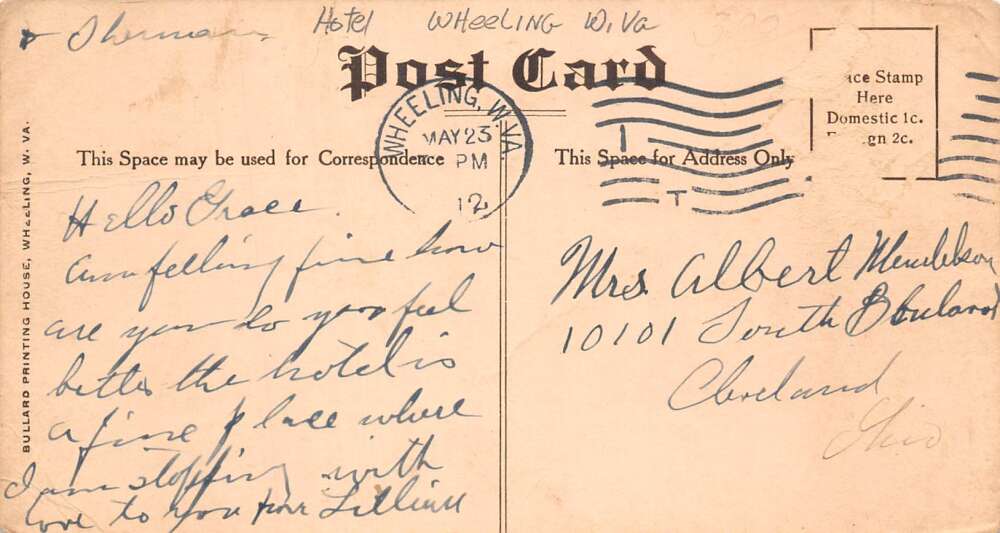 Sherman Hotel WHEELING W. Va
Post Card
WHEELING, W. VA.
MAY 23
PM
12
ace Stamp
Here
Domestic 1c.
gn 2c.
This Space may be used for Correspondence
This Space for Address Only
BULLARD PRINTING HOUSE, WHEELING, W. VA.
Hello Grace
am felling fine how
are you do you feel
better the hotel is
a fine place where
I am stopping with
love to you from Lillian
Mrs Albert
10101 South
Cleveland
Ohio